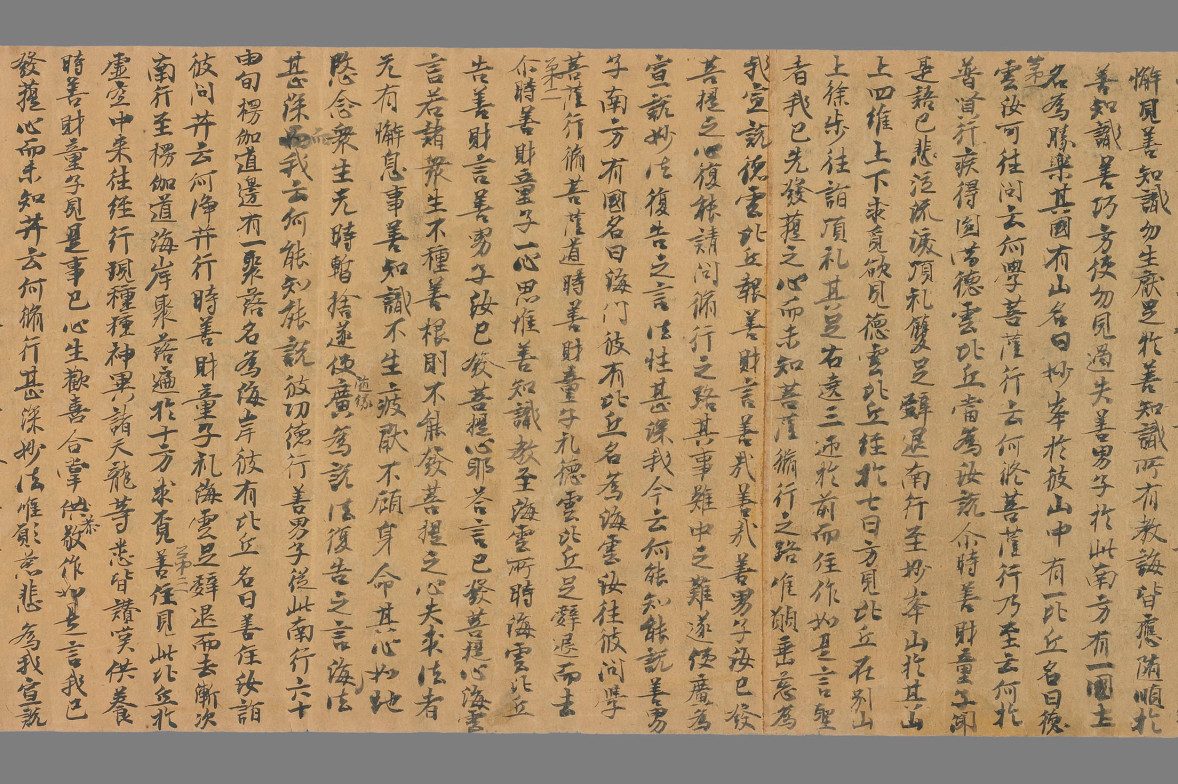 懈見善知識勿生猒足於善知識所有教誨皆應随順於
善知識善巧方便勿見過失善男子於此南方有一國土
名為勝樂其國有山名曰妙峯於彼山中有一比丘名曰德
第一
雲汝可往問云何學菩薩行云何修菩薩行乃至云何於
普賢行疾得圓滿德雲比丘當為汝說尒時善財童子聞
是語已悲泣流淚頂礼雙足辝退南行至妙峯山於其山
上四維上下求覓欲見德雲比丘經於七日方見比丘在別山
上徐步往詣頂礼其足右遶三迊於前而住作如是言聖
者我已先發菩提之心而未知菩薩修行之路唯願垂慈為
我宣說德雲比丘報善財言善㢤善㢤善男子汝已發
菩提之心復能請問修行之路其事難中之難遂便廣為
宣說妙法復告之言法性甚深我今云何能知能說善男
子南方有國名曰海門彼有比丘名為海雲汝往彼問學
菩薩行修菩薩道時善財童子礼德雲比丘足辝退而去
第二
尒時善財童子一心思惟善知識教至海雲所時海雲比丘
告善財言善男子汝已發菩提心耶荅言已發菩提心海雲
言若諸衆生不種善根則不能發菩提之心夫求法者
无有懈息事善知識不生疲猒不顧身命其心如地
愍念衆生无時暫捨遂便廣為說法復告之言海法
隨緣
甚深而我云何能知能說彼功德行善男子從此南行六十
由旬楞伽道邊有一聚落名為海岸彼有比丘名曰善住汝詣
彼問𦬇云何淨𦬇行時善財童子礼海雲足辝退而去漸次
第三
南行至楞伽道海岸聚落遍於十方求覓善住見此比丘於
虛空中来往經行現種種神異諸天龍等悉皆讚嘆供養
時善財童子見是事已心生歡喜合掌恭敬作如是言我已
發菩提心而未知𦬇云何修行甚深妙法唯願慈悲為我宣說